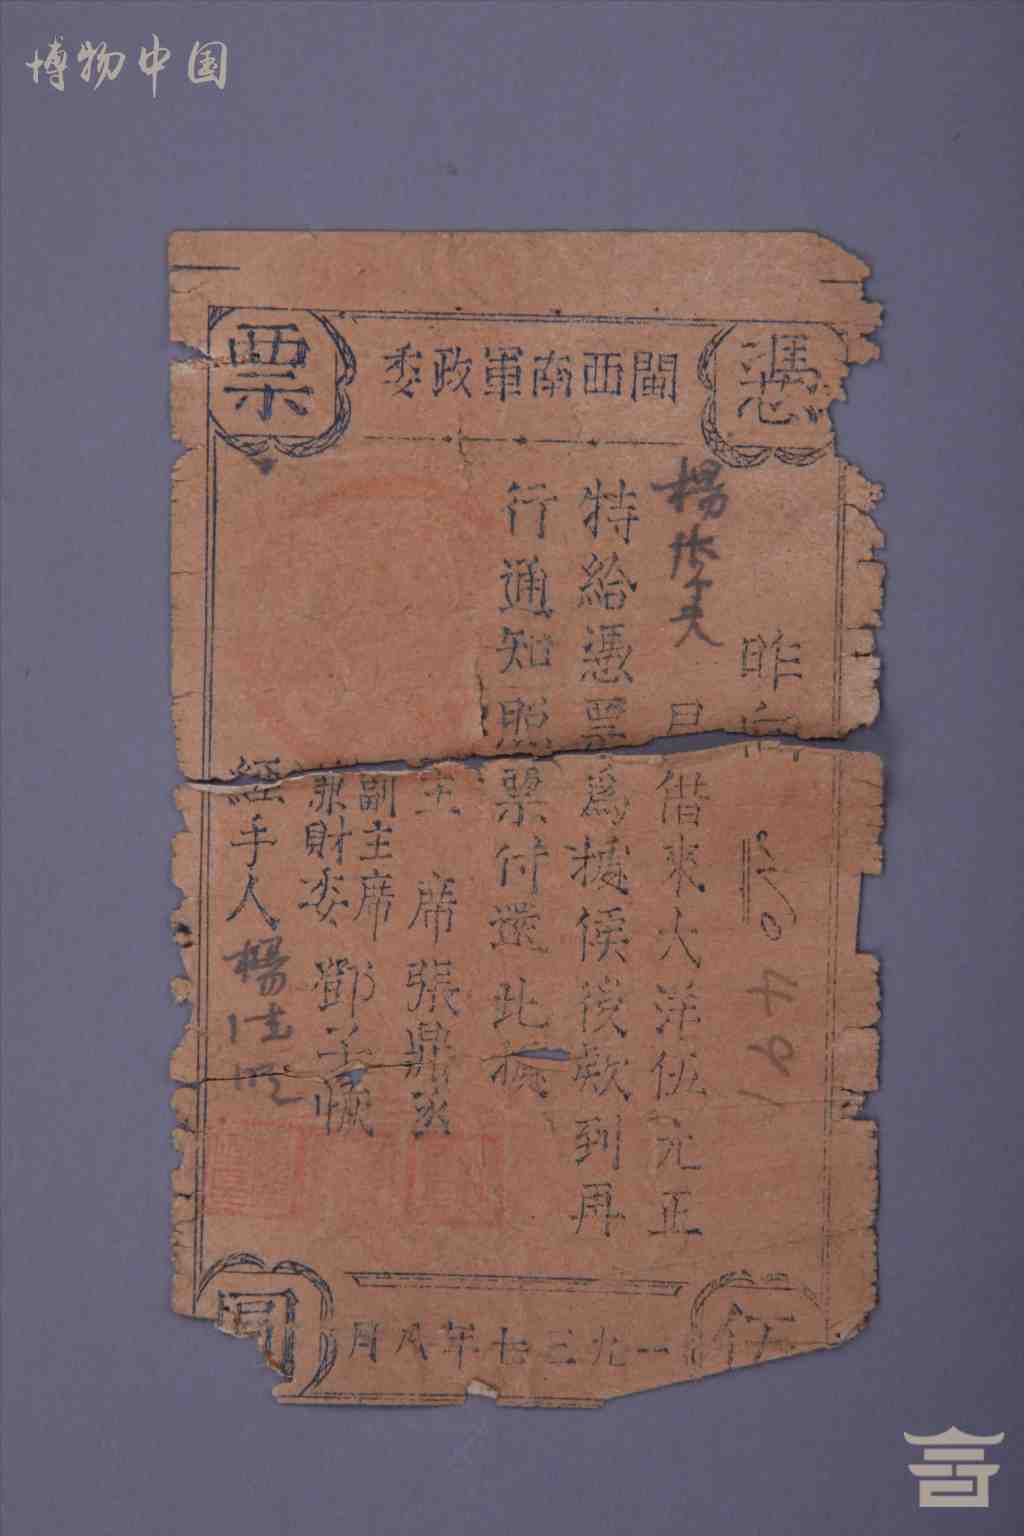 博物中国
憑票
閩西南軍政委
昨向
楊 君借來大洋伍元正
特給憑票爲據侯後欵到再
行通知照票付還此據
主席 張鼎丞
副主席
兼財委 鄧子恢
經手人 楊
491
伍
一九三七年八月